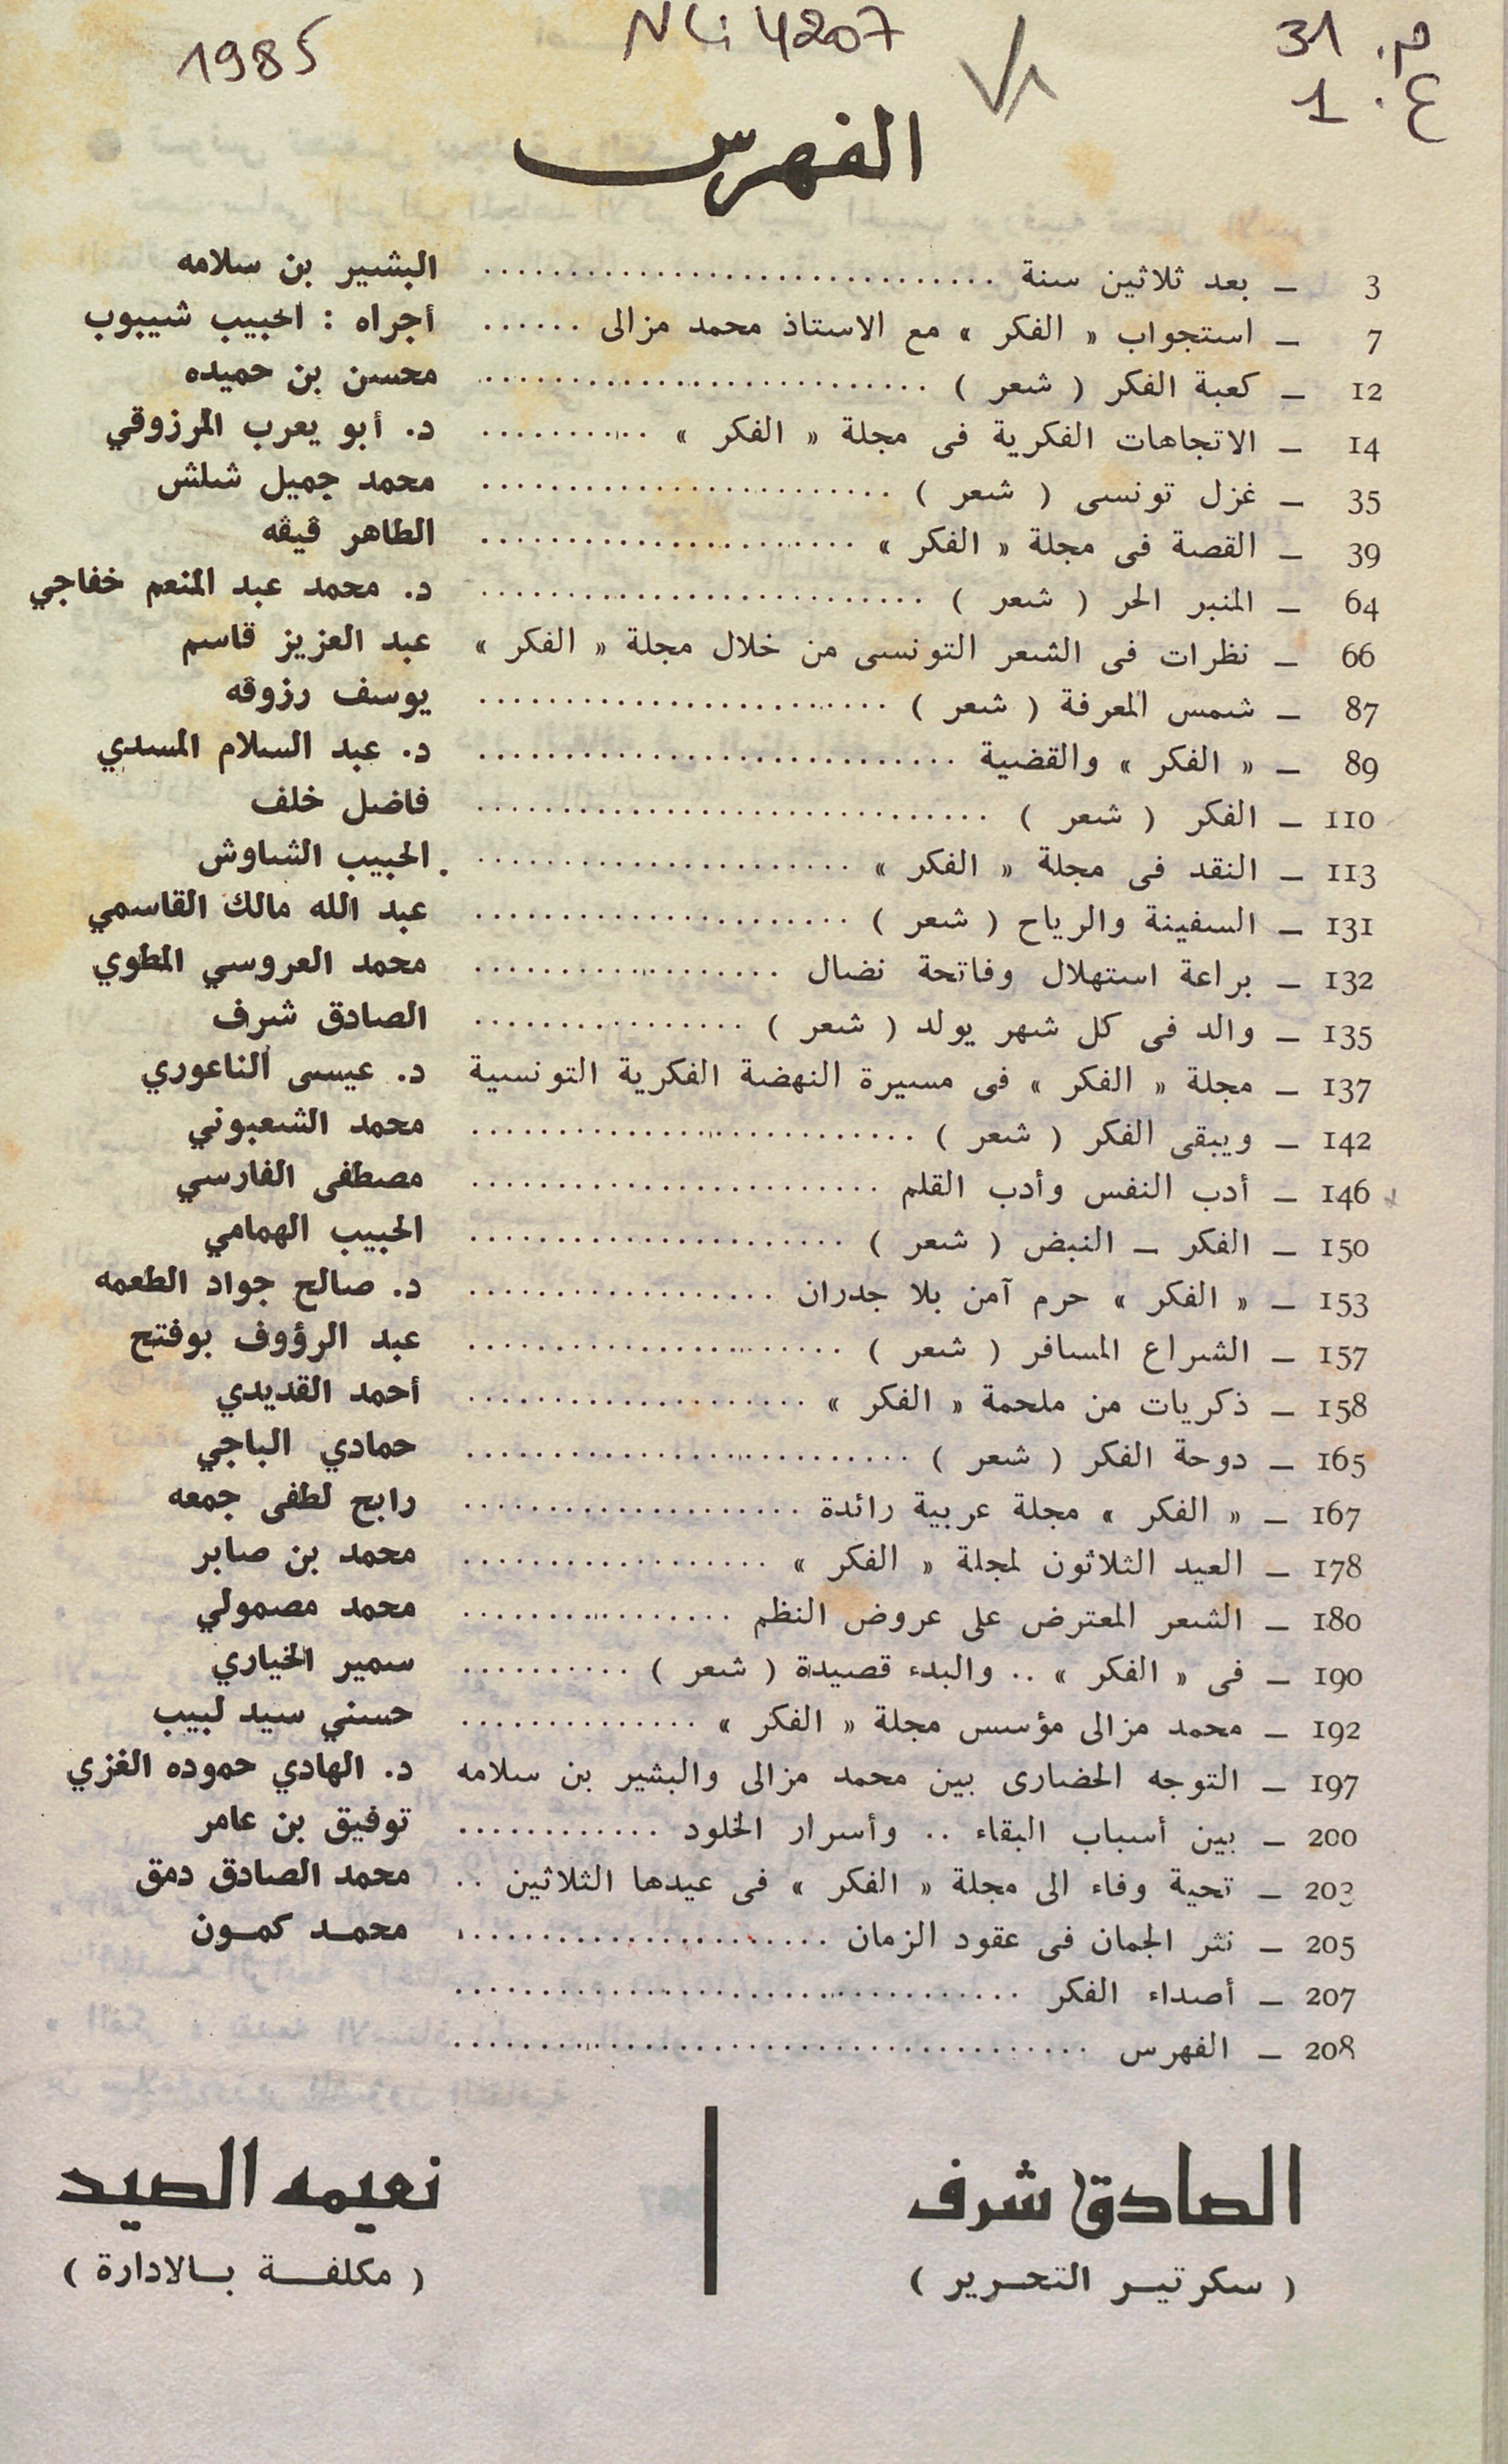 م. 31 NLi 4207 1985
ع. 1
الفهرس
3 – بعد ثلاثين سنة .............................. البشير بن سلامه
7 – استجواب « الفكر » مع الاستاذ محمد مزالى ...... أجراه : الحبيب شيبوب
12 – كعبة الفكر ( شعر ) ........................... محسن بن حميده
14 – الاتجاهات الفكرية فى مجلة « الفكر » .......... د. أبو يعرب المرزوقي
35 – غزل تونسى ( شعر ) ........................ محمد جميل شلش
39 – القصة فى مجلة « الفكر » ...................... الطاهر ڨيڨه
64 – المنبر الحر ( شعر ) .......................... د. محمد عبد المنعم خفاجي
66 – نظرات فى الشعر التونسى من خلال مجلة « الفكر » عبد العزيز قاسم
87 – شمس المعرفة ( شعر ) ........................ يوسف رزوڨه
89 – « الفكر » والقضية ............................ د. عبد السلام المسدي
110 – الفكر ( شعر ) .............................. فاضل خلف
113 – النقد فى مجلة « الفكر » ...................... الحبيب الشاوش
131 – السفينة والرياح ( شعر ) ...................... عبد الله مالك القاسمي
132 – براعة استهلال وفاتحة نضال .................. محمد العروسي المطوي
135 – والد فى كل شهر يولد ( شعر ) ................ الصادق شرف
137 – مجلة « الفكر » فى مسيرة النهضة الفكرية التونسية د. عيسى الناعوري
142 – ويبقى الفكر ( شعر ) .......................... محمد الشعبوني
146 – أدب النفس وأدب القلم ........................ مصطفى الفارسي
150 – الفكر – النبض ( شعر ) ...................... الحبيب الهمامي
153 – « الفكر » حرم آمن بلا جدران .................. د. صالح جواد الطعمه
157 – الشراع المسافر ( شعر ) ...................... عبد الرؤوف بوفتح
158 – ذكريات من ملحمة « الفكر » .................... أحمد القديدي
165 – دوحة الفكر ( شعر ) .......................... حمادي الباجي
167 – « الفكر » مجلة عربية رائدة .................... رابح لطفى جمعه
178 – العيد الثلاثون لمجلة « الفكر » .................. محمد بن صابر
180 – الشعر المعترض على عروض النظم ................ محمد مصمولي
190 – فى « الفكر » .. والبدء قصيدة ( شعر ) .......... سمير الخياري
192 – محمد مزالى مؤسس مجلة « الفكر » .............. حسني سيد لبيب
197 – التوجه الحضارى بين محمد مزالى والبشير بن سلامه د. الهادي حموده الغزي
200 – بين أسباب البقاء .. وأسرار الخلود ............ توفيق بن عامر
203 – تحية وفاء الى مجلة « الفكر » فى عيدها الثلاثين .. محمد الصادق دمق
205 – نثر الجمان فى عقود الزمان ...................... محمد كمون
207 – أصداء الفكر ..................................
208 – الفهرس ......................................
الصادق شرف نعيمه الصيد
( سكرتير التحرير ) ( مكلفة بالادارة )